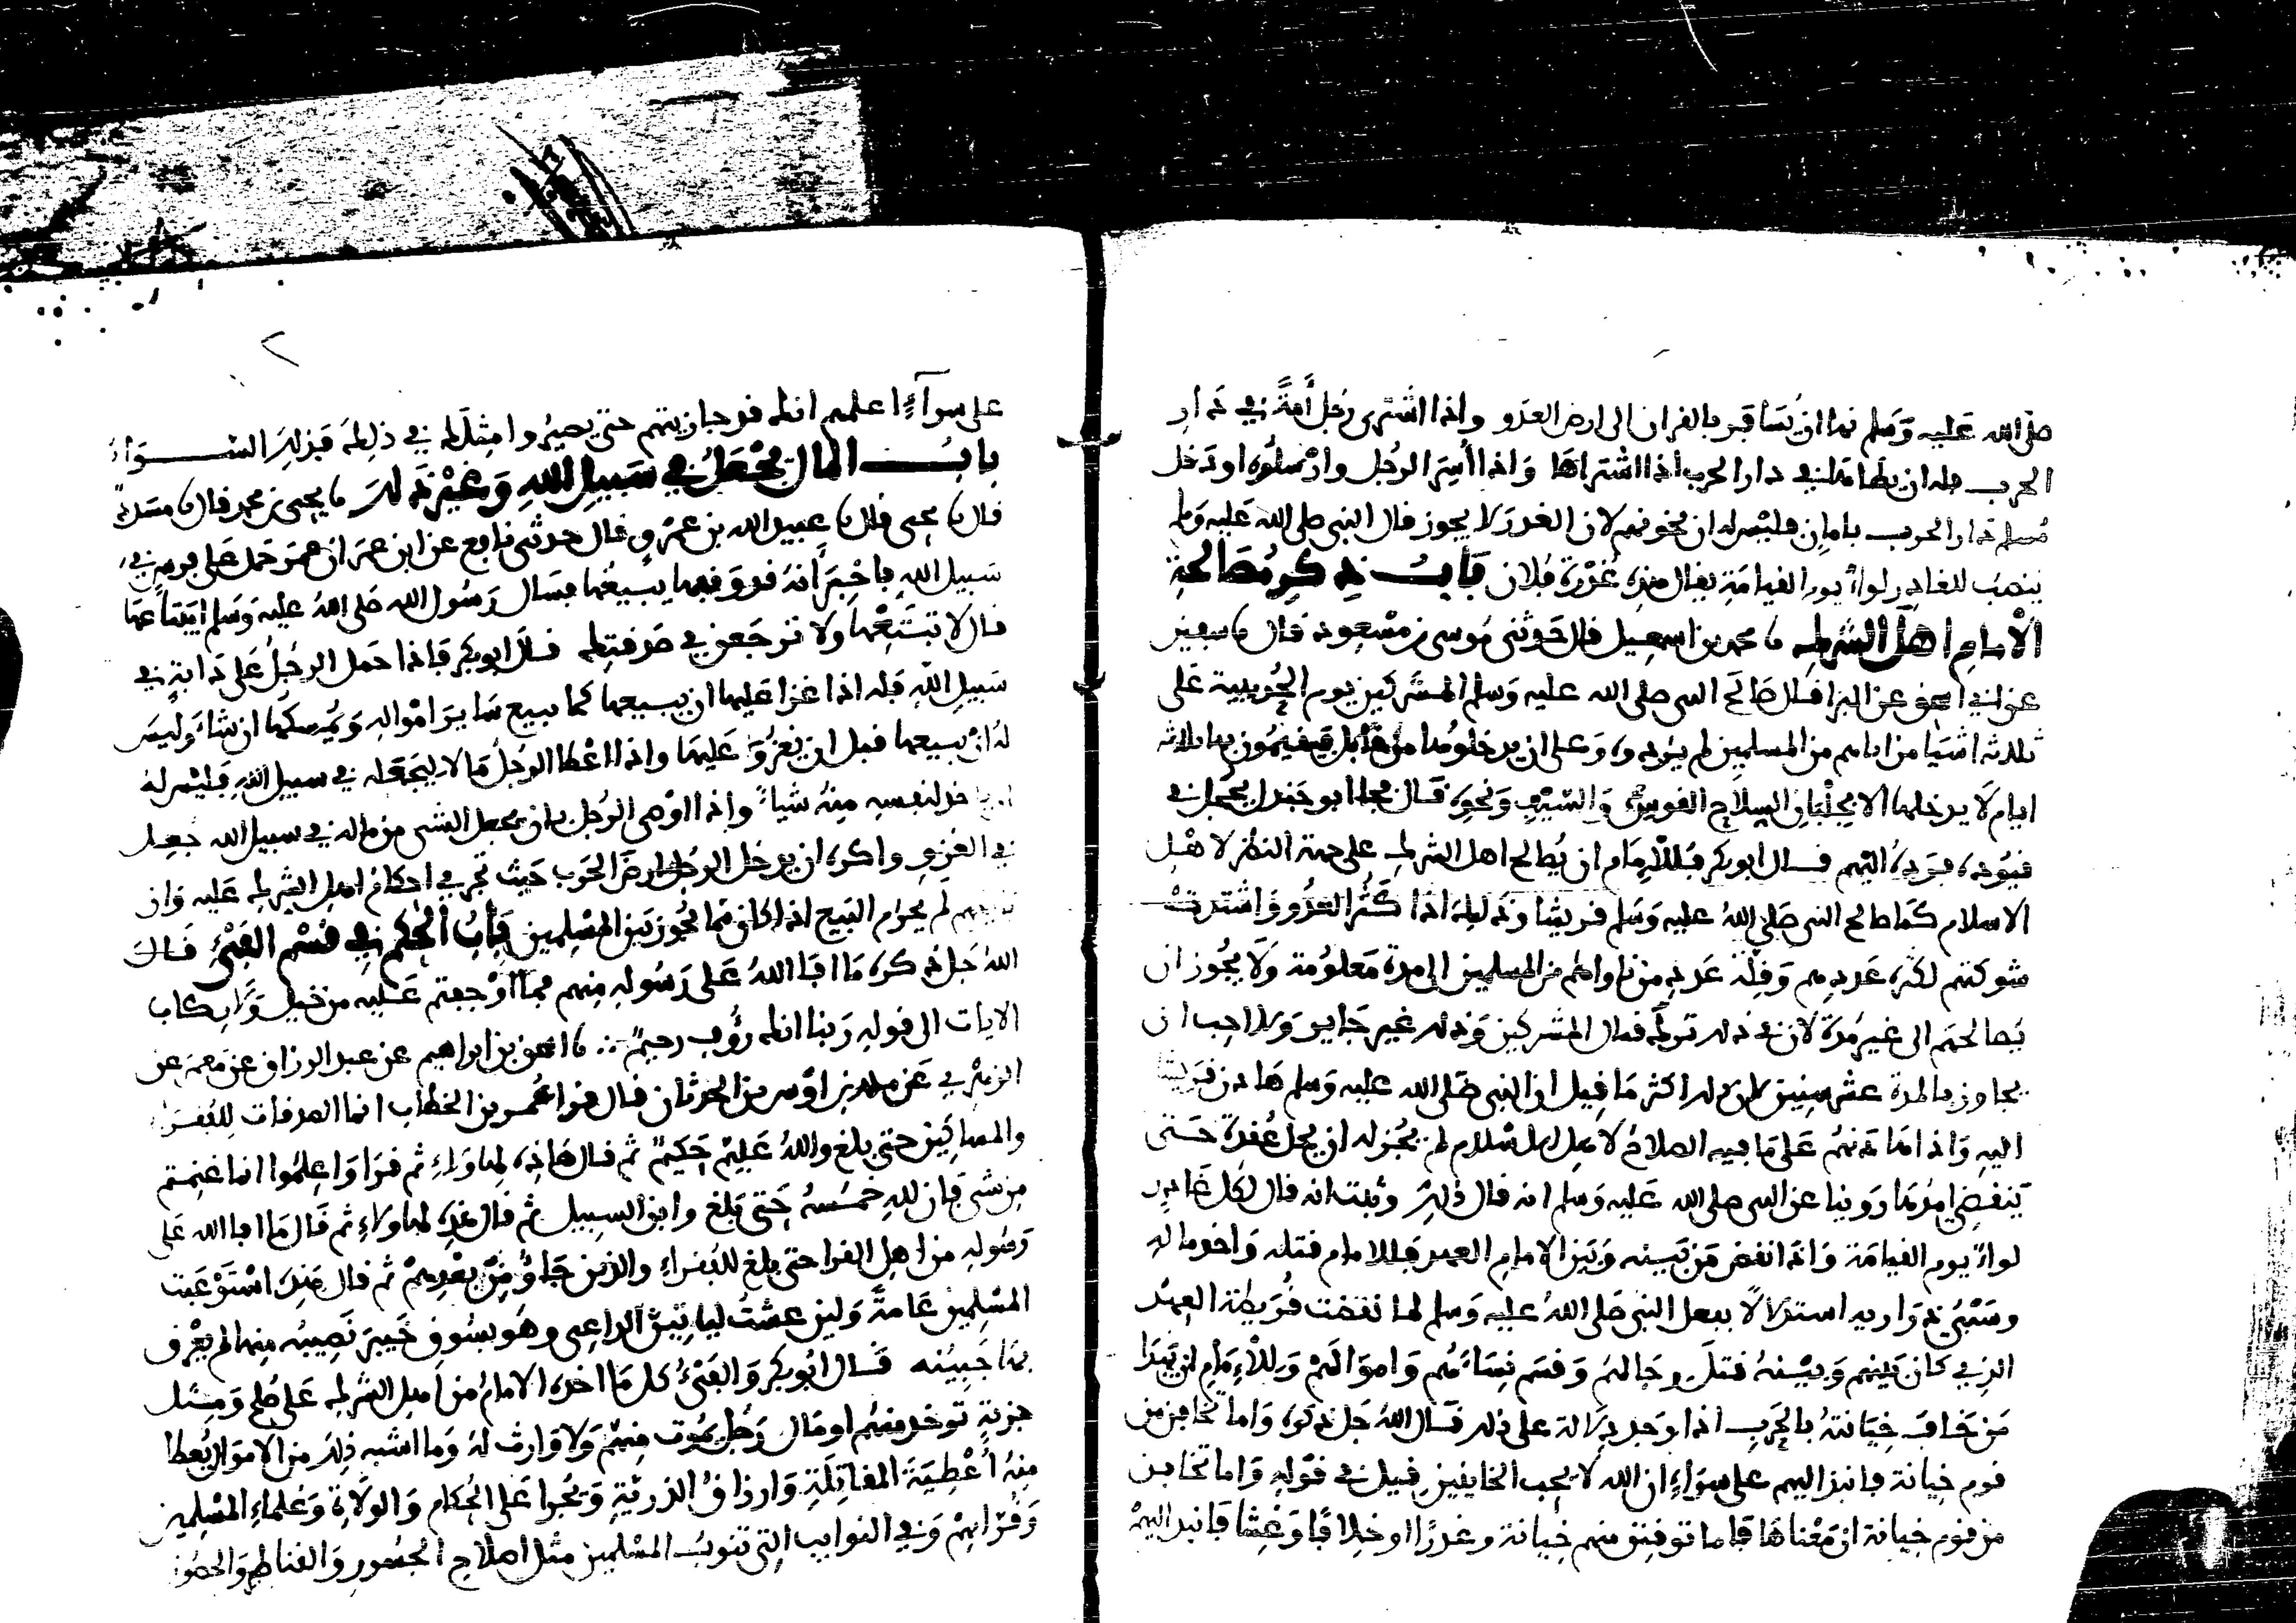 صلى الله عليه وسلم نها ان يسافر بالقران الى ارض العدو واذا اشترى رجل أمة في دار
الحرب فله ان يطاها في دار الحرب اذا اشتراها واذا أسر الرجل وارسلوه او دخل
مسلم دار الحرب بامان فليس له ان يخونهم لان الغدر لا يجوز قال النبي صلى الله عليه وسلم
ينصب للغادر لواء يوم القيامة يقال هذه غدرة فلان باب ذكر مصالحة
الامام اهل الشرك نا محمد بن اسمعيل قال حدثني موسى بن مسعود قال نا سفين
عن ابي اسحق عن البرا قال صالح النبي صلى الله عليه وسلم المشركين يوم الحديبية على
ثلاثة اشيا من اتاهم من المسلمين لم يردوه وعلى ان يدخلوها من قابل فيقيمون بها ثلاثة
ايام لا يدخلها الا بجلبان السلاح القوس والسيف ونحوه قال فجا ابو جندل يحجل في
قيوده فرده اليهم قال ابو بكر فللامام ان يصالح اهل الشرك على جهة النظر لاهل
الاسلام كما صالح النبي صلى الله عليه وسلم قريشا وذلك اذا كثر العدو واشتدت
شوكتهم لكثرة عددهم وقلة عدد من ناواهم من المسلمين الى مدة معلومة ولا يجوز ان
يصالحهم الى غير مدة لان في ذلك ترك قتال المشركين وذلك غير جايز ولا احب ان
يجاوز بالمدة عشر سنين لان ذلك اكثر ما قيل ان النبي صلى الله عليه وسلم هادن قريشا
اليه واذا هادنهم على ما فيه الصلاح لاهل الاسلام لم يجز له ان يحل عقده حتى
ينقضي امدها روينا عن النبي صلى الله عليه وسلم انه قال ذلك وثبت انه قال لكل غادر
لواء يوم القيامة واذا نقض من بينه وبين الامام العهد فللامام قتله واخذ ماله
وسبي ذراريه استدلالا بفعل النبي صلى الله عليه وسلم لما نقضت قريظة العهد
الذي كان بينهم وبينه قتل رجالهم وقسم نساءهم واموالهم وللامام ان يبدا
من يخاف خيانته بالحرب اذا وجد دلالة على ذلك قال الله جل ذكره واما تخافن من
قوم خيانة فانبذ اليهم على سواء ان الله لا يحب الخاينين قيل في قوله واما تخافن
من قوم خيانة ان معناها فاما توقنن منهم خيانة وغدرا او خلافا وغشا فانبذ اليهم
على سواء اعلمهم انك قد حاربتهم حتى يصيروا مثلك في ذلك فذلك السواء
باب المال يجعل في سبيل الله وغير ذلك نا يحيى بن محمد قال نا مسدد
قال نا يحيى قال نا عبيد الله بن عمر قال حدثني نافع عن ابن عمر ان عمر حمل على فرس في
سبيل الله فاخبر أنه قد وقفها يبيعها فسال رسول الله صلى الله عليه وسلم ايبتاعها
قال لا تبتعها ولا ترجعن في صدقتك قال ابو بكر فاذا حمل الرجل على دابة في
سبيل الله فله اذا غزا عليها ان يبيعها كما يبيع ساير امواله ويمسكها ان شا وليس
له ان يبيعها قبل ان يغزو عليها واذا اعطا الرجل مالا ليجعله في سبيل الله فليس له
خذ لنفسه منه شيا واذا اوصى الرجل بان يجعل الشي من ماله في سبيل الله جعل
في الغزو واكره ان يدخل الرجل ارض الحرب حيث تجري احكام اهل الشرك عليه وان
لم يحرم البيع اذا كان مما يجوز بين المسلمين باب الحكم في قسم الفيء قال
الله جل ذكره ما افا الله على رسوله منهم فما اوجفتم عليه من خيل ولا ركاب
الايات الى قوله ربنا انك رؤف رحيم نا اسحق بن ابراهيم عن عبد الرزاق عن معمر عن
الزهري عن ملك بن اوس بن الحدثان قال قرا عمر بن الخطاب انما الصدقات للفقراء
والمساكين حتى بلغ والله عليم حكيم ثم قال هاذه لهاولاء ثم قرا واعلموا انما غنمتم
من شي فان لله خمسه حتى بلغ وابن السبيل ثم قال هذه لهاولاء ثم قال ما افا الله على
رسوله من اهل القرا حتى بلغ للفقراء والذين جاؤ من بعدهم ثم قال هذه استوعبت
المسلمين عامة ولين عشت لياتين الراعي وهو بسوق خيبر نصيبه منها لم يعرق
بها جبينه قال ابو بكر والفيء كل ما اخذه الامام من اهل الشرك على صلح ومثل
جزية توخذ منهم او مال رجل يموت منهم ولا وارث له وما اشبه ذلك من الاموال يعطا
منه أعطية المقاتلة وارزاق الذرية وتجرا على الحكام والولاة وعلماء المسلمين
وقرائهم وفي النوايب التي تنوب المسلمين مثل اصلاح الجسور والقناطر والحصون